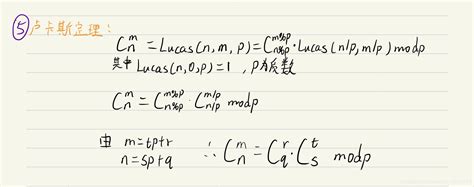 ⑤卢卡斯定理:
C_n^m = Lucas(n, m, p) = C_{n%p}^{m%p} · Lucas(n/p, m/p) mod p
其中 Lucas(n, 0, p) = 1 , p为质数
C_n^m = C_{n%p}^{m%p} · C_{n/p}^{m/p} mod p
由 m = tp+r
n = sp+q ∴ C_n^m = C_q^r · C_s^t mod p